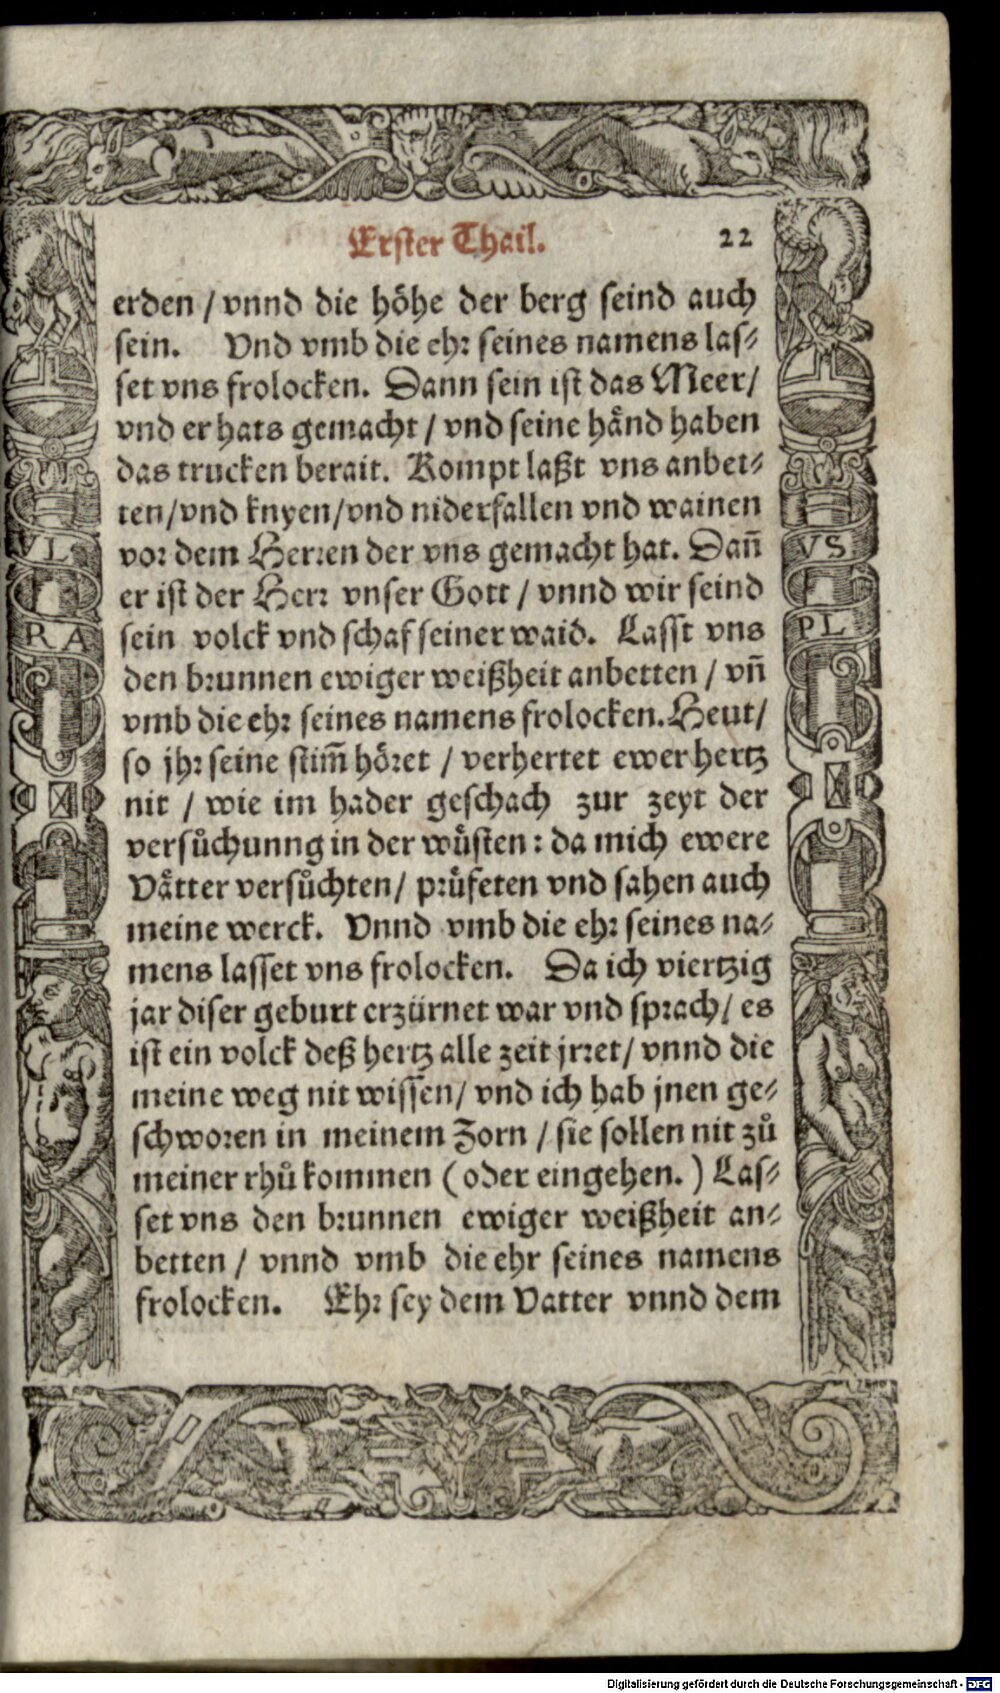 Erster Thail. 22
erden / vnnd die höhe der berg seind auch
sein. Vnd vmb die ehr seines namens las⸗
set vns frolocken. Dann sein ist das Meer/
vnd er hats gemacht / vnd seine hånd haben
das trucken berait. Kompt laßt vns anbet⸗
ten/vnd knyen/vnd niderfallen vnd wainen
vor dem Herren der vns gemacht hat. Dañ
er ist der Herr vnser Gott / vnnd wir seind
sein volck vnd schaf seiner waid. Lasst vns
den brunnen ewiger weißheit anbetten / vñ
vmb die ehr seines namens frolocken. Heut/
so jhr seine stim̃ höret / verhertet ewer hertz
nit / wie im hader geschach zur zeyt der
versůchunng in der wüsten: da mich ewere
Våtter versůchten/ prüfeten vnd sahen auch
meine werck. Vnnd vmb die ehr seines na⸗
mens lasset vns frolocken. Da ich viertzig
jar diser geburt erzürnet war vnd sprach/ es
ist ein volck deß hertz alle zeit jrret/ vnnd die
meine weg nit wissen/ vnd ich hab jnen ge⸗
schworen in meinem Zorn / sie sollen nit zů
meiner rhů kommen (oder eingehen.) Las⸗
set vns den brunnen ewiger weißheit an⸗
betten / vnnd vmb die ehr seines namens
frolocken. Ehr sey dem Vatter vnnd dem
VL
RA
VS
PL
Digitalisierung gefördert durch die Deutsche Forschungsgemeinschaft - DFG